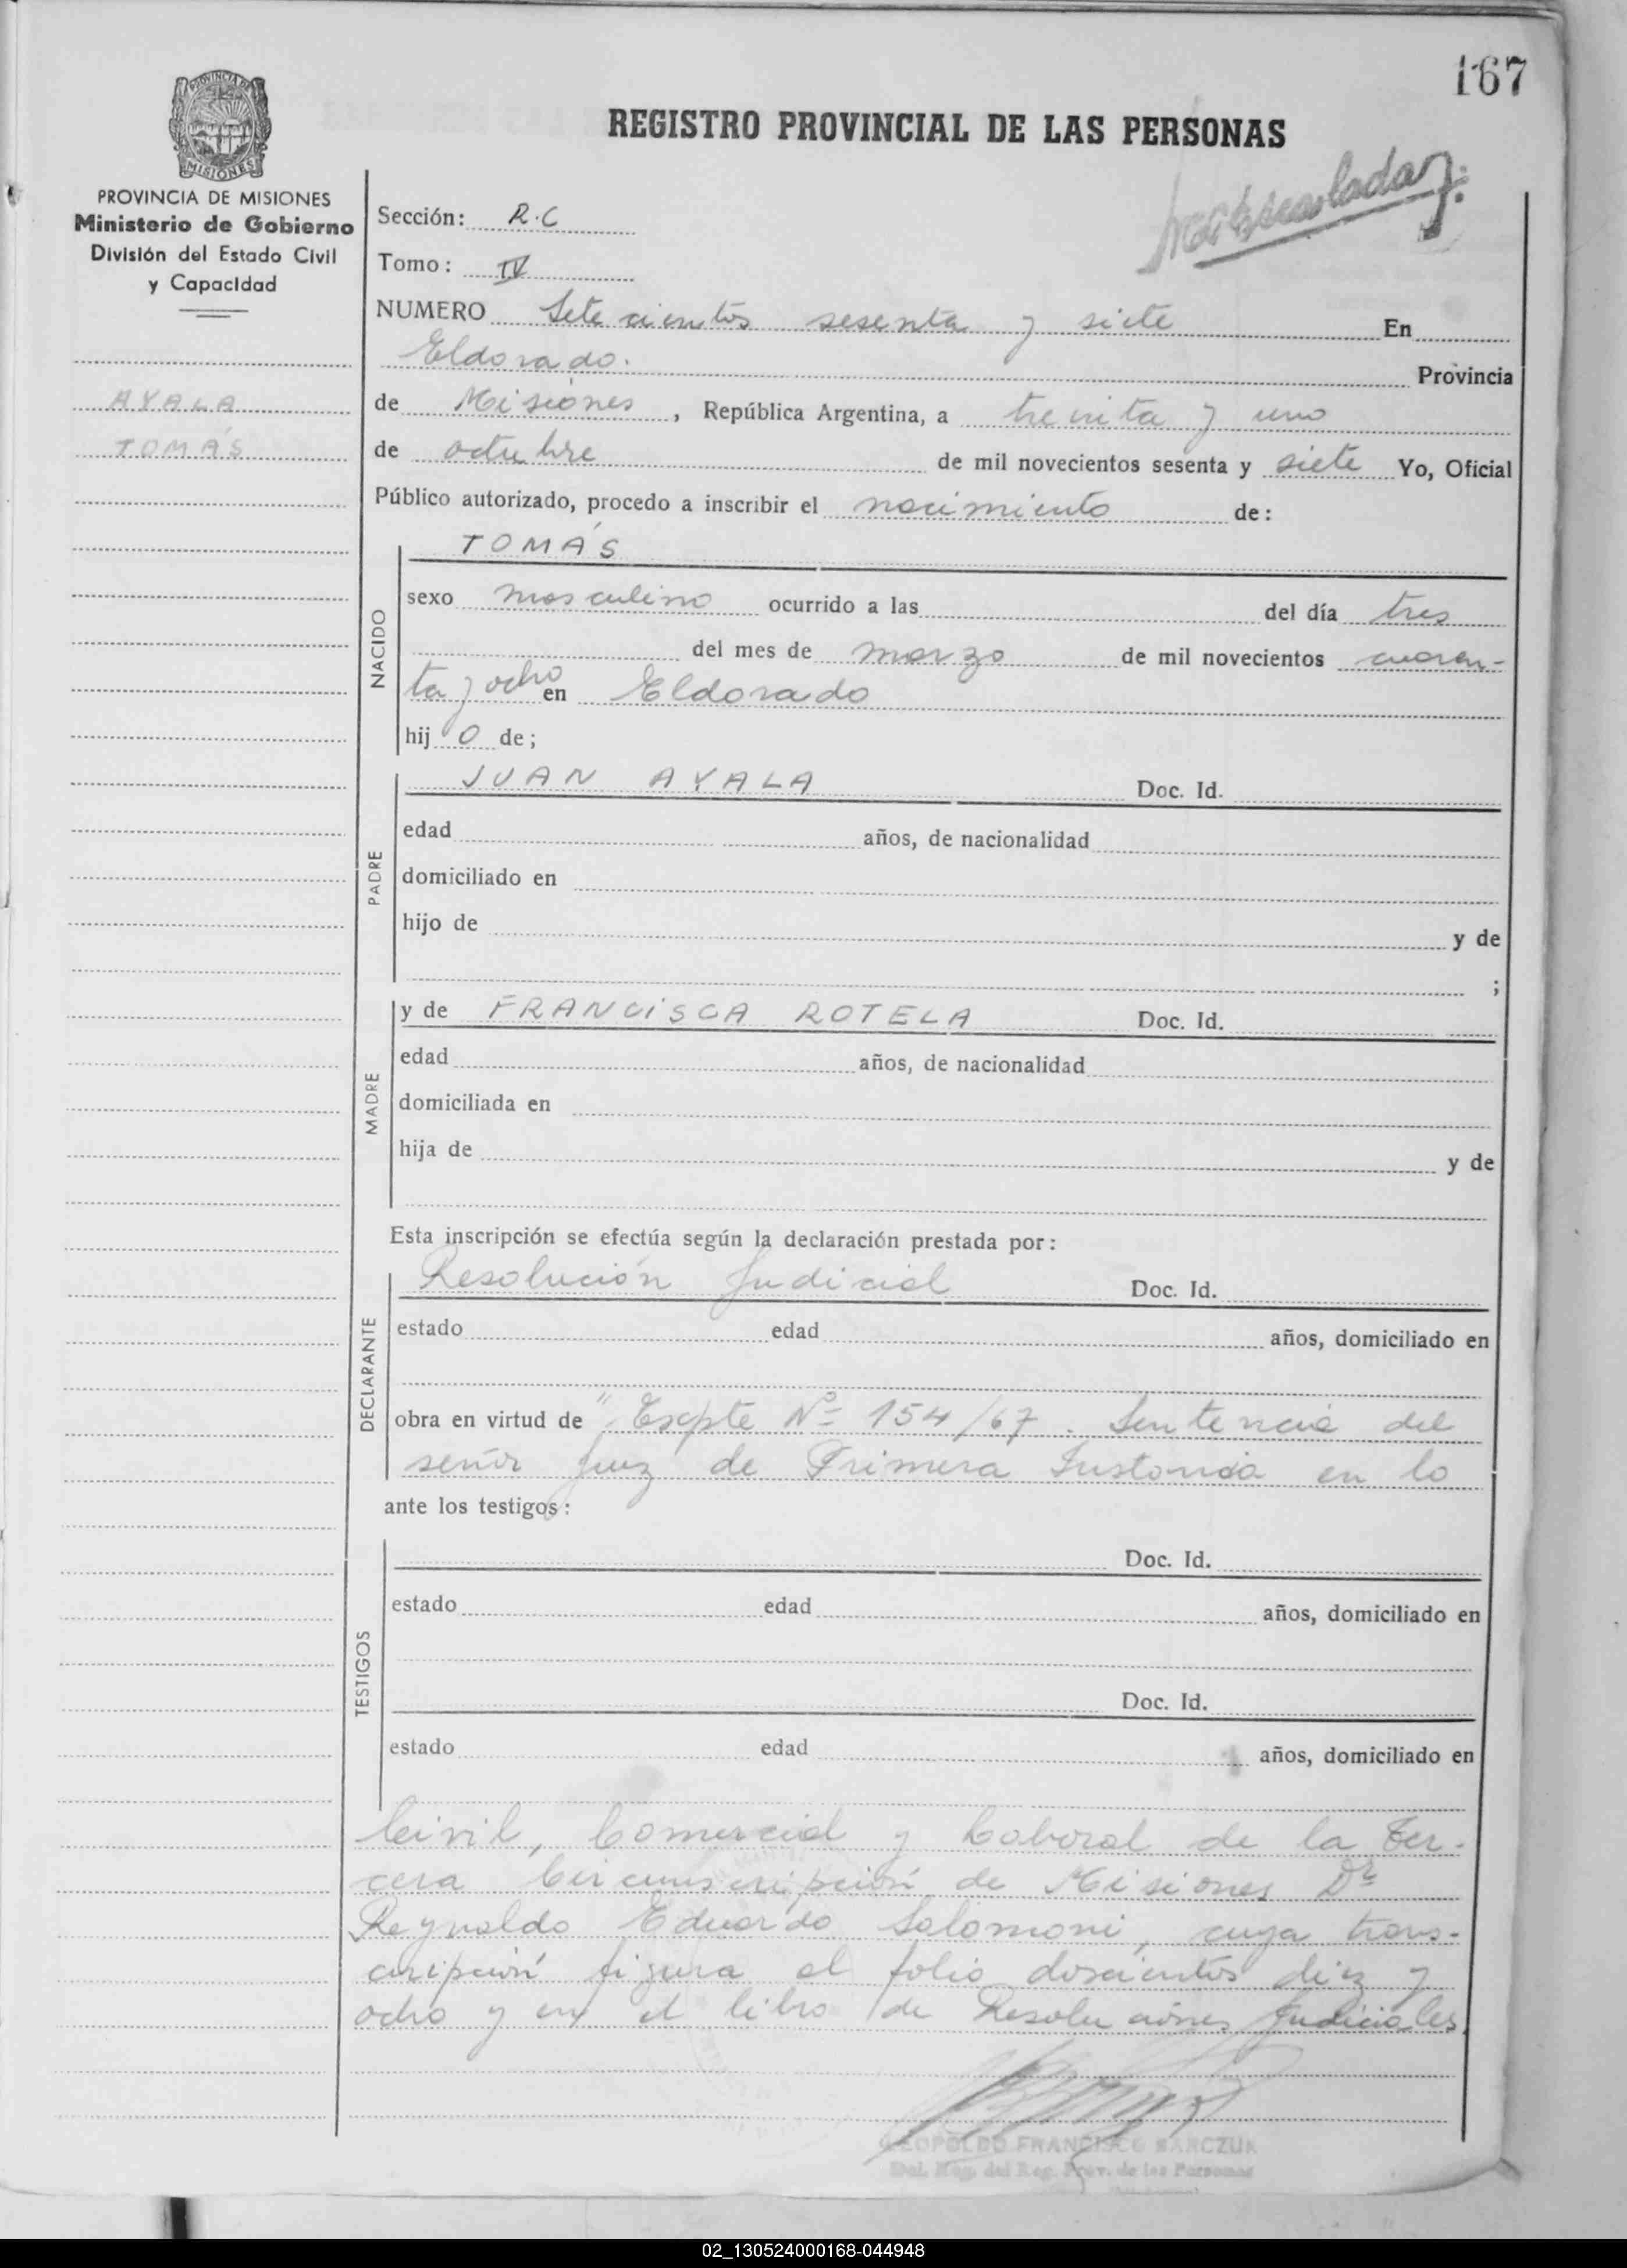 167
REGISTRO PROVINCIAL DE LAS PERSONAS
PROVINCIA DE
MISIONES
PROVINCIA DE MISIONES
Ministerio de Gobierno
División del Estado Civil
y Capacidad
AYALA
TOMÁS
Sección: R.C
Tomo: IV
NUMERO Setecientos sesenta y siete En
Eldorado. Provincia
de Misiones, República Argentina, a treinta y uno
de octubre de mil novecientos sesenta y siete Yo, Oficial
Público autorizado, procedo a inscribir el nacimiento de:
NACIDO
TOMÁS
sexo masculino ocurrido a las del día tres
del mes de marzo de mil novecientos cuaren-
ta y ocho en Eldorado
hij o de;
PADRE
JUAN AYALA Doc. Id.
edad años, de nacionalidad
domiciliado en
hijo de y de
;
MADRE
y de FRANCISCA ROTELA Doc. Id.
edad años, de nacionalidad
domiciliada en
hija de y de
Esta inscripción se efectúa según la declaración prestada por:
DECLARANTE
Resolución Judicial Doc. Id.
estado edad años, domiciliado en
obra en virtud de " Expte Nº 154/67. Sentencia del
señor Juez de Primera Instancia en lo
ante los testigos:
TESTIGOS
Doc. Id.
estado edad años, domiciliado en
Doc. Id.
estado edad años, domiciliado en
Civil, Comercial y Laboral de la Ter-
cera Circunscripción de Misiones Dr
Reynaldo Eduardo Salomoni, cuya trans-
cripción figura al folio doscientos diez y
ocho y en el libro de Resoluciones Judiciales.
LEOPOLDO FRANCISCO
Del. Reg. del Reg. Prov. de las Personas
02_130524000168-044948